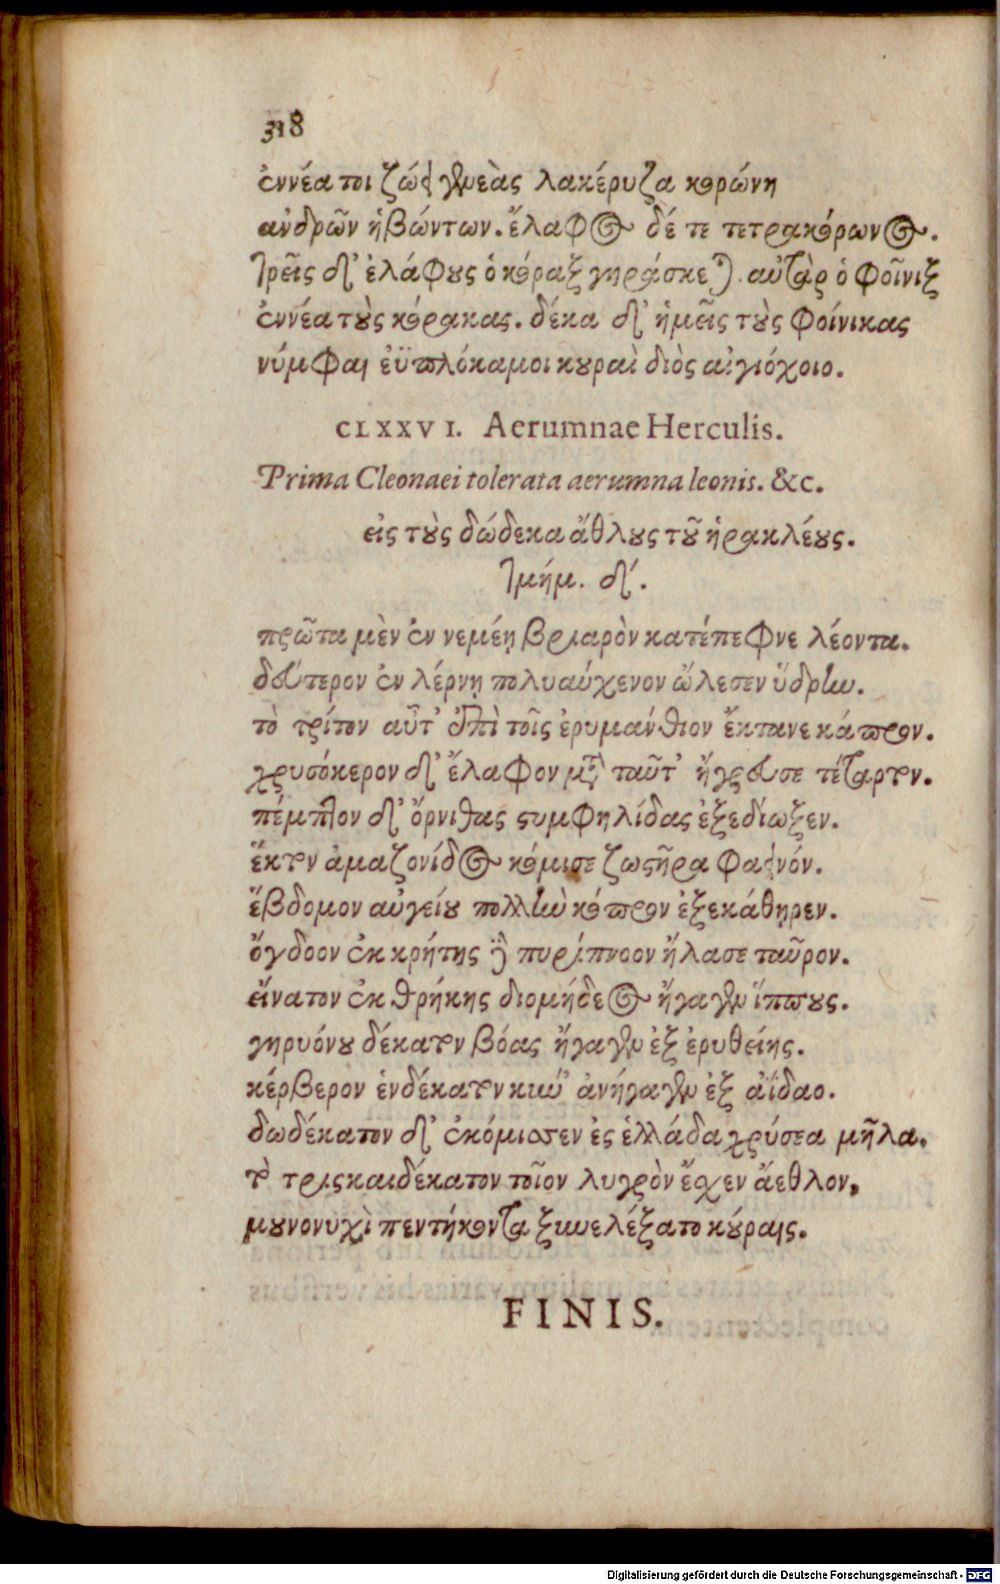 318
ἐννέα τοι ζώει γενεὰς λακέρυζα κορώνη
ἀνδρῶν ἡβώντων. ἔλαφος δέ τε τετρακόρωνος.
τρεῖς δ' ἐλάφους ὁ κόραξ γηράσκεται. αὐτὰρ ὁ φοῖνιξ
ἐννέα τοὺς κόρακας. δέκα δ' ἡμεῖς τοὺς φοίνικας
νύμφαι ἐϋπλόκαμοι κουραὶ διὸς αἰγιόχοιο.
CLXXVI. Aerumnae Herculis.
Prima Cleonaei tolerata aerumna leonis. &c.
εἰς τοὺς δώδεκα ἄθλους τοῦ ἡρακλέους.
τμήμ. δ'.
πρῶτα μὲν ἐν νεμέῃ βριαρὸν κατέπεφνε λέοντα.
δεύτερον ἐν λέρνῃ πολυαύχενον ὤλεσεν ὕδρην.
τὸ τρίτον αὖτ' ἐπὶ τοῖς ἐρυμάνθιον ἔκτανε κάπρον.
χρυσόκερον δ' ἔλαφον μετὰ ταῦτ' ἤγρευσε τέταρτον.
πέμπτον δ' ὄρνιθας στυμφηλίδας ἐξεδίωξεν.
ἕκτον ἀμαζονίδος κόμισε ζωστῆρα φαεινόν.
ἕβδομον αὐγείου πολλὴν κόπρον ἐξεκάθηρεν.
ὄγδοον ἐκ κρήτης δὲ πυρίπνοον ἤλασε ταῦρον.
εἴνατον ἐκ θρήκης διομήδεος ἤγαγεν ἵππους.
γηρυόνου δέκατον βόας ἤγαγεν ἐξ ἐρυθείης.
κέρβερον ἑνδέκατον κύν' ἀνήγαγεν ἐξ ἀΐδαο.
δωδέκατον δ' ἐκόμισσεν ἐς ἑλλάδα χρύσεα μῆλα.
τὸ τρισκαιδέκατον τοῖον λυγρὸν ἔσχεν ἄεθλον,
μουνονυχὶ πεντήκοντα ξυνελέξατο κούραις.
FINIS.
Digitalisierung gefördert durch die Deutsche Forschungsgemeinschaft - DFG